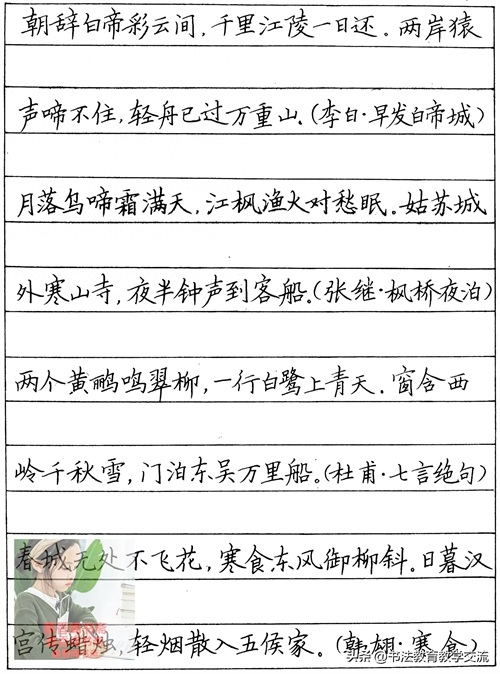 朝辞白帝彩云间,千里江陵一日还。两岸猿
声啼不住,轻舟已过万重山。(李白·早发白帝城)
月落乌啼霜满天,江枫渔火对愁眠。姑苏城
外寒山寺,夜半钟声到客船。(张继·枫桥夜泊)
两个黄鹂鸣翠柳,一行白鹭上青天。窗含西
岭千秋雪,门泊东吴万里船。(杜甫·七言绝句)
春城无处不飞花,寒食东风御柳斜。日暮汉
宫传蜡烛,轻烟散入五侯家。(韩翃·寒食)
头条@书法教育教学交流